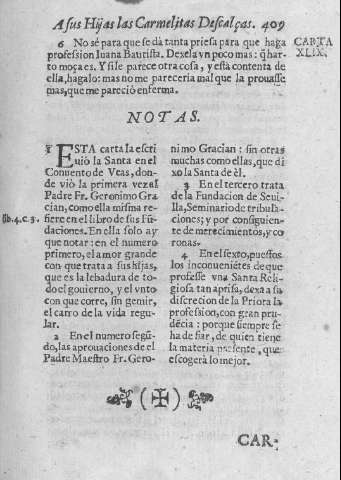 A sus Hijas las Carmelitas Descalças. 409
6 No sè para que se dà tanta priesa para que haga
profession Iuana Bautista. Dexela vn poco mas: q̃ har-
to moça es. Y si le parece otra cosa, y està contenta de
ella, hagalo: mas no me pareceria mal que la prouasse
mas, que me pareció enferma.
CARTA
XLIX.
NOTAS.
1 ESTA carta la escri
uiò la Santa en el
Conuento de Veas, don-
de viò la primera vez al
Padre Fr. Geronimo Gra
cian, como ella misma re-
lib. 4. c. 3.
fiere en el libro de sus Fũ
daciones. En ella solo ay
que notar: en el numero
primero, el amor grande
con que trata a sus hijas,
que es la lebadura de to-
do el gouierno, y el vnto
con que corre, sin gemir,
el carro de la vida regu-
lar.
2 En el numero segũ-
do, las aprouaciones de el
Padre Maestro Fr. Gero-
nimo Gracian: sin otras
muchas como ellas, que di
xo la Santa de èl.
3 En el tercero trata
de la Fundacion de Seui-
lla, Seminario de tribula-
ciones; y por consiguien-
te de merecimientos, y co
ronas.
4 En el sexto, puestos
los inconueniẽtes de que
professe vna Santa Reli-
giosa tan aprisa, dexa a su
discrecion de la Priora la
profession, con gran pru-
dẽcia: porque siempre se
ha de fiar, de quien tiene
la materia presente, que
escogerà lo mejor.
CAR-